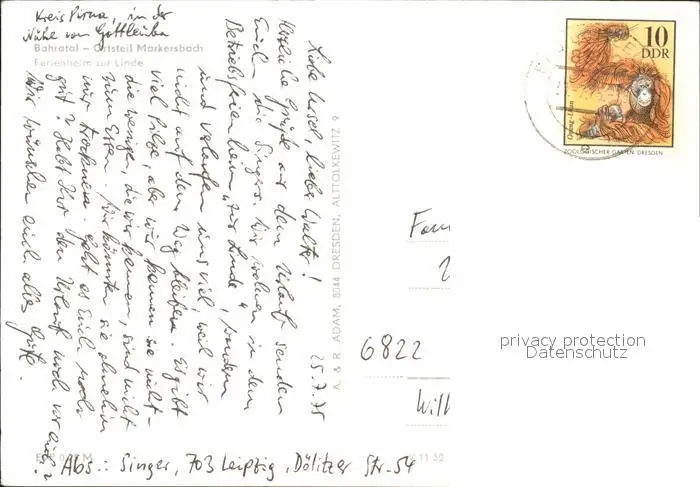 Kreis Pirna, in der
Nähe von Gottleuba
Bahratal - Ortsteil Markersbach
Ferienheim zur Linde
25.7.75
Liebe Ursel, lieber Walter!
Herzliche Grüße aus dem Urlaub senden
Euch die Singers. Wir wohnen in dem
Betriebsferienheim "zur Linde", wandern
und verlaufen uns viel, weil wir
nicht auf dem Weg bleiben. Es gibt
viel Pilze, aber wir kennen sie nicht-
die wenigen, die wir kennen, sind nicht
zum Essen. Wir könnten sie ohnehin
nur trocknen. Geht es Euch noch
gut? Habt Ihr den Urlaub noch vor Euch?
Wir wünschen euch alles Gute.
Abs.: Singer, 703 Leipzig, Dölitzer Str. 54
A. & R. ADAM, 8044 DRESDEN, ALTTOLKEWITZ 9
V 11 52
10
DDR
Orang-Utan
ZOOLOGISCHER GARTEN DRESDEN
Fam
6822
Will
privacy protection
Datenschutz